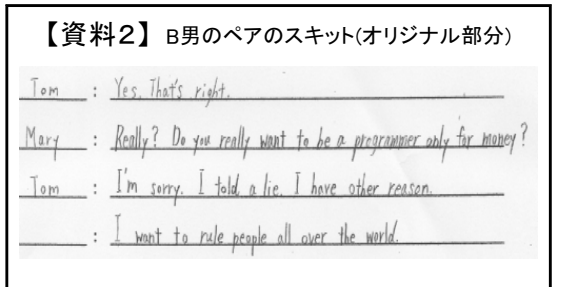 【資料2】 B男のペアのスキット(オリジナル部分)
Tom : Yes. That's right.
Mary : Really? Do you really want to be a programmer only for money?
Tom : I'm sorry. I told a lie. I have other reason.
: I want to rule people all over the world.